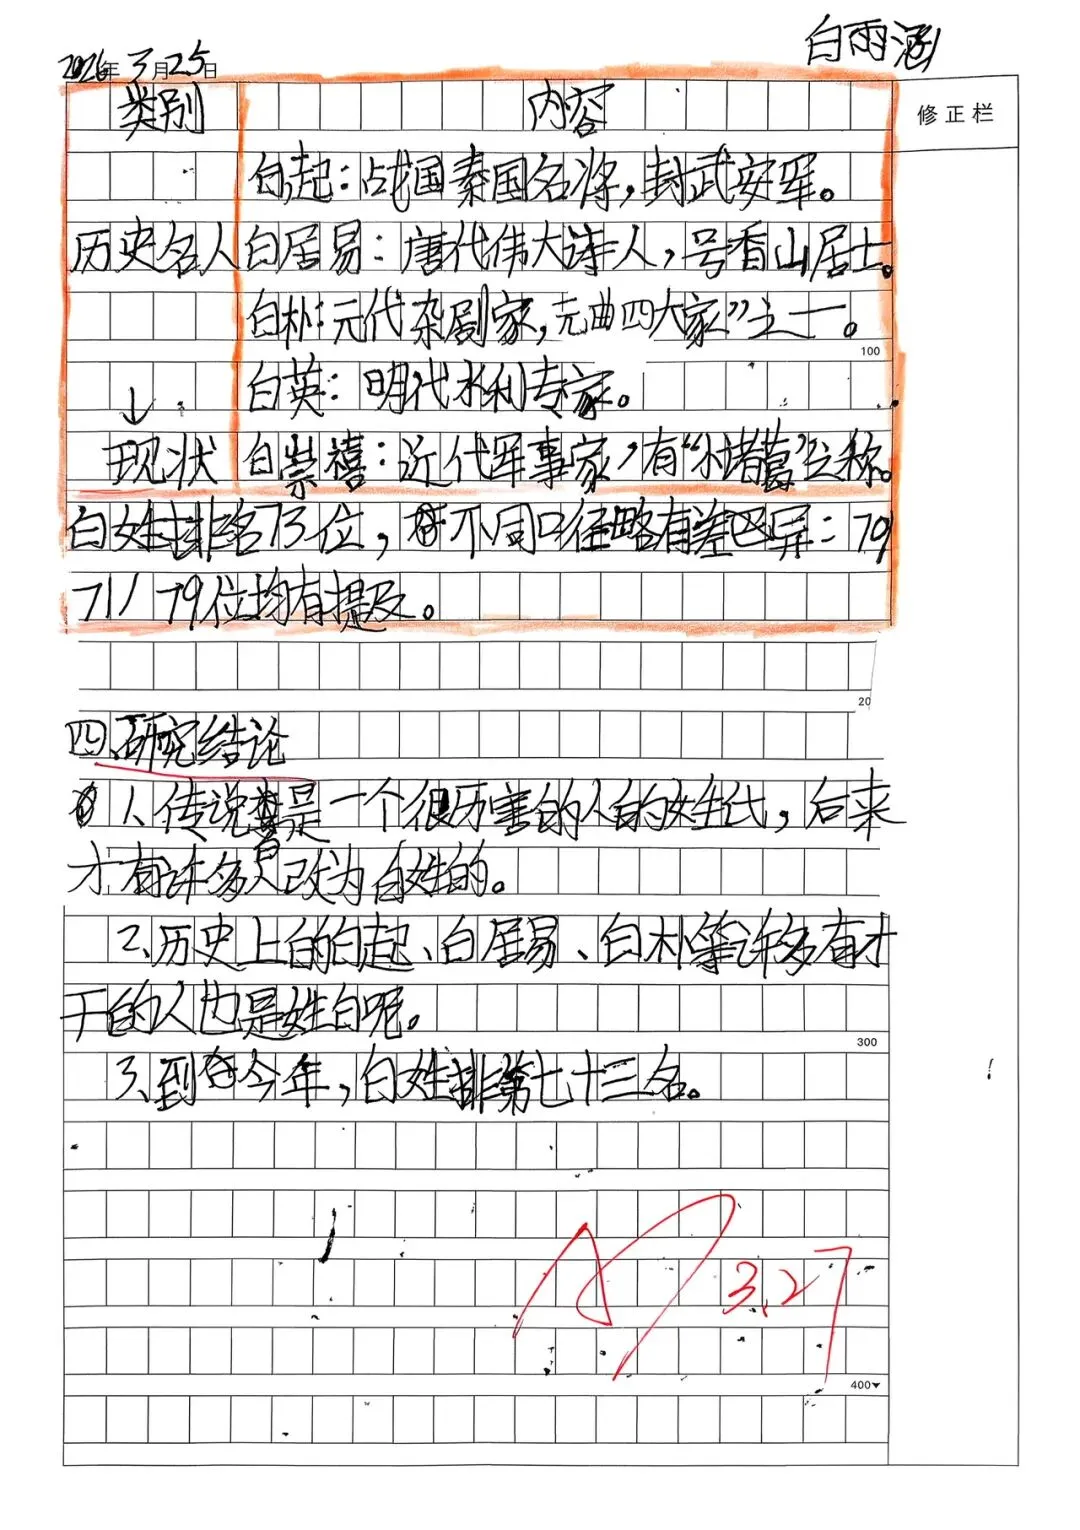 白雨涵
2026年3月25日
修正栏
类别 内容
白起：战国秦国名将，封武安军。
历史名人 白居易：唐代伟大诗人，号香山居士。
白朴：元代杂剧家，元曲四大家”之一。
100
白英：明代水利专家。
↓
现状 白崇禧：近代军事家，有“小诸葛”之称。
白姓排名73位，不同口径略有差异：79
71/79位均有提及。
20
四、研究结论
1、传说是一个很历害的人的姓氏，后来
才有许多人改为白姓的。
2、历史上的白起、白居易、白朴等许多有才
干的人也是姓白呢。
300
3、到今年，白姓排第七十三名。
3.27
400